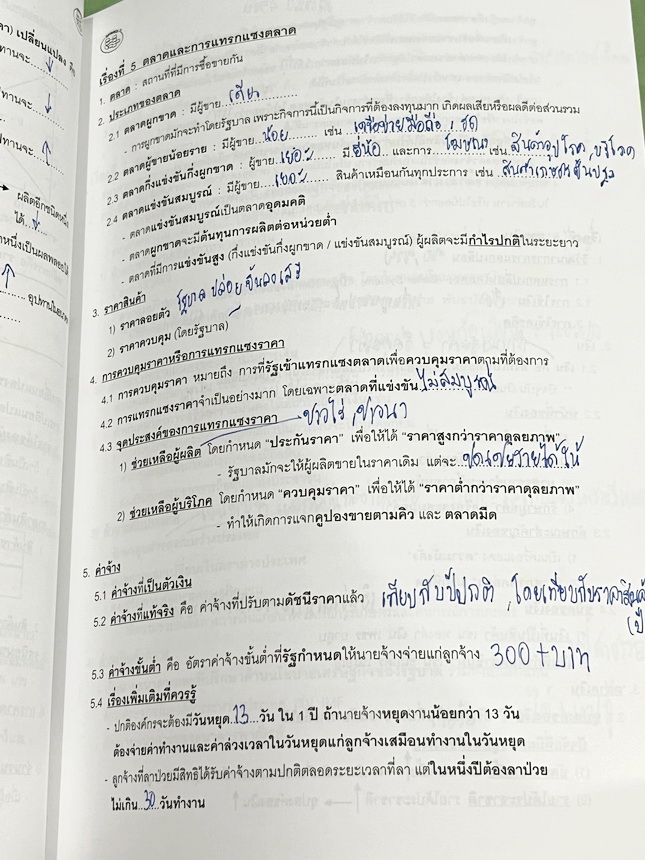 เรื่องที่ 5 ตลาดและการแทรกแซงตลาด
1. ตลาด : สถานที่ที่มีการซื้อขายกัน
2. ประเภทของตลาด
2.1 ตลาดผูกขาด : มีผู้ขาย...เดียว
- การผูกขาดมักจะทำโดยรัฐบาล เพราะกิจการนี้เป็นกิจการที่ต้องลงทุนมาก เกิดผลเสียหรือผลดีต่อส่วนรวม
2.2 ตลาดผู้ขายน้อยราย : มีผู้ขาย...น้อย... เช่น ...เครือข่ายมือถือ, รถ
2.3 ตลาดกึ่งแข่งขันกึ่งผูกขาด : ผู้ขาย...เยอะ... มี ยี่ห้อ และการ โฆษณา เช่น สินค้าอุปโภค, บริโภค
2.4 ตลาดแข่งขันสมบูรณ์ : มีผู้ขาย...เยอะ... สินค้าเหมือนกันทุกประการ เช่น สินค้าเกษตรขั้นปฐม
- ตลาดแข่งขันสมบูรณ์เป็นตลาดอุดมคติ
- ตลาดผูกขาดจะมีต้นทุนการผลิตต่อหน่วยต่ำ
- ตลาดที่มีการแข่งขันสูง (กึ่งแข่งขันกึ่งผูกขาด / แข่งขันสมบูรณ์) ผู้ผลิตจะมีกำไรปกติในระยะยาว
3. ราคาสินค้า
1) ราคาลอยตัว รัฐบาลปล่อยขึ้นลงเสรี
2) ราคาควบคุม (โดยรัฐบาล)
4. การควบคุมราคาหรือการแทรกแซงราคา
4.1 การควบคุมราคา หมายถึง การที่รัฐเข้าแทรกแซงตลาดเพื่อควบคุมราคาตามที่ต้องการ
4.2 การแทรกแซงราคาจำเป็นอย่างมาก โดยเฉพาะตลาดที่แข่งขัน ไม่สมบูรณ์
4.3 จุดประสงค์ของการแทรกแซงราคา ชาวไร่, ชาวนา
1) ช่วยเหลือผู้ผลิต โดยกำหนด "ประกันราคา" เพื่อให้ได้ "ราคาสูงกว่าราคาดุลยภาพ"
- รัฐบาลมักจะให้ผู้ผลิตขายในราคาเดิม แต่จะ...ชดเชยรายได้ให้
2) ช่วยเหลือผู้บริโภค โดยกำหนด "ควบคุมราคา" เพื่อให้ได้ "ราคาต่ำกว่าราคาดุลยภาพ"
- ทำให้เกิดการแจกคูปองขายตามคิว และ ตลาดมืด
5. ค่าจ้าง
5.1 ค่าจ้างที่เป็นตัวเงิน
5.2 ค่าจ้างที่แท้จริง คือ ค่าจ้างที่ปรับตามดัชนีราคาแล้ว เทียบกับปีปกติ, โดยเทียบกับราคาสินค้า
5.3 ค่าจ้างขั้นต่ำ คือ อัตราค่าจ้างขั้นต่ำที่รัฐกำหนดให้นายจ้างจ่ายแก่ลูกจ้าง 300+บาท
5.4 เรื่องเพิ่มเติมที่ควรรู้
- ปกติองค์กรจะต้องมีวันหยุด...13...วัน ใน 1 ปี ถ้านายจ้างหยุดงานน้อยกว่า 13 วัน
ต้องจ่ายค่าทำงานและค่าล่วงเวลาในวันหยุดแก่ลูกจ้างเสมือนทำงานในวันหยุด
- ลูกจ้างที่ลาป่วยมีสิทธิได้รับค่าจ้างตามปกติตลอดระยะเวลาที่ลา แต่ในหนึ่งปีต้องลาป่วย
ไม่เกิน...30...วันทำงาน